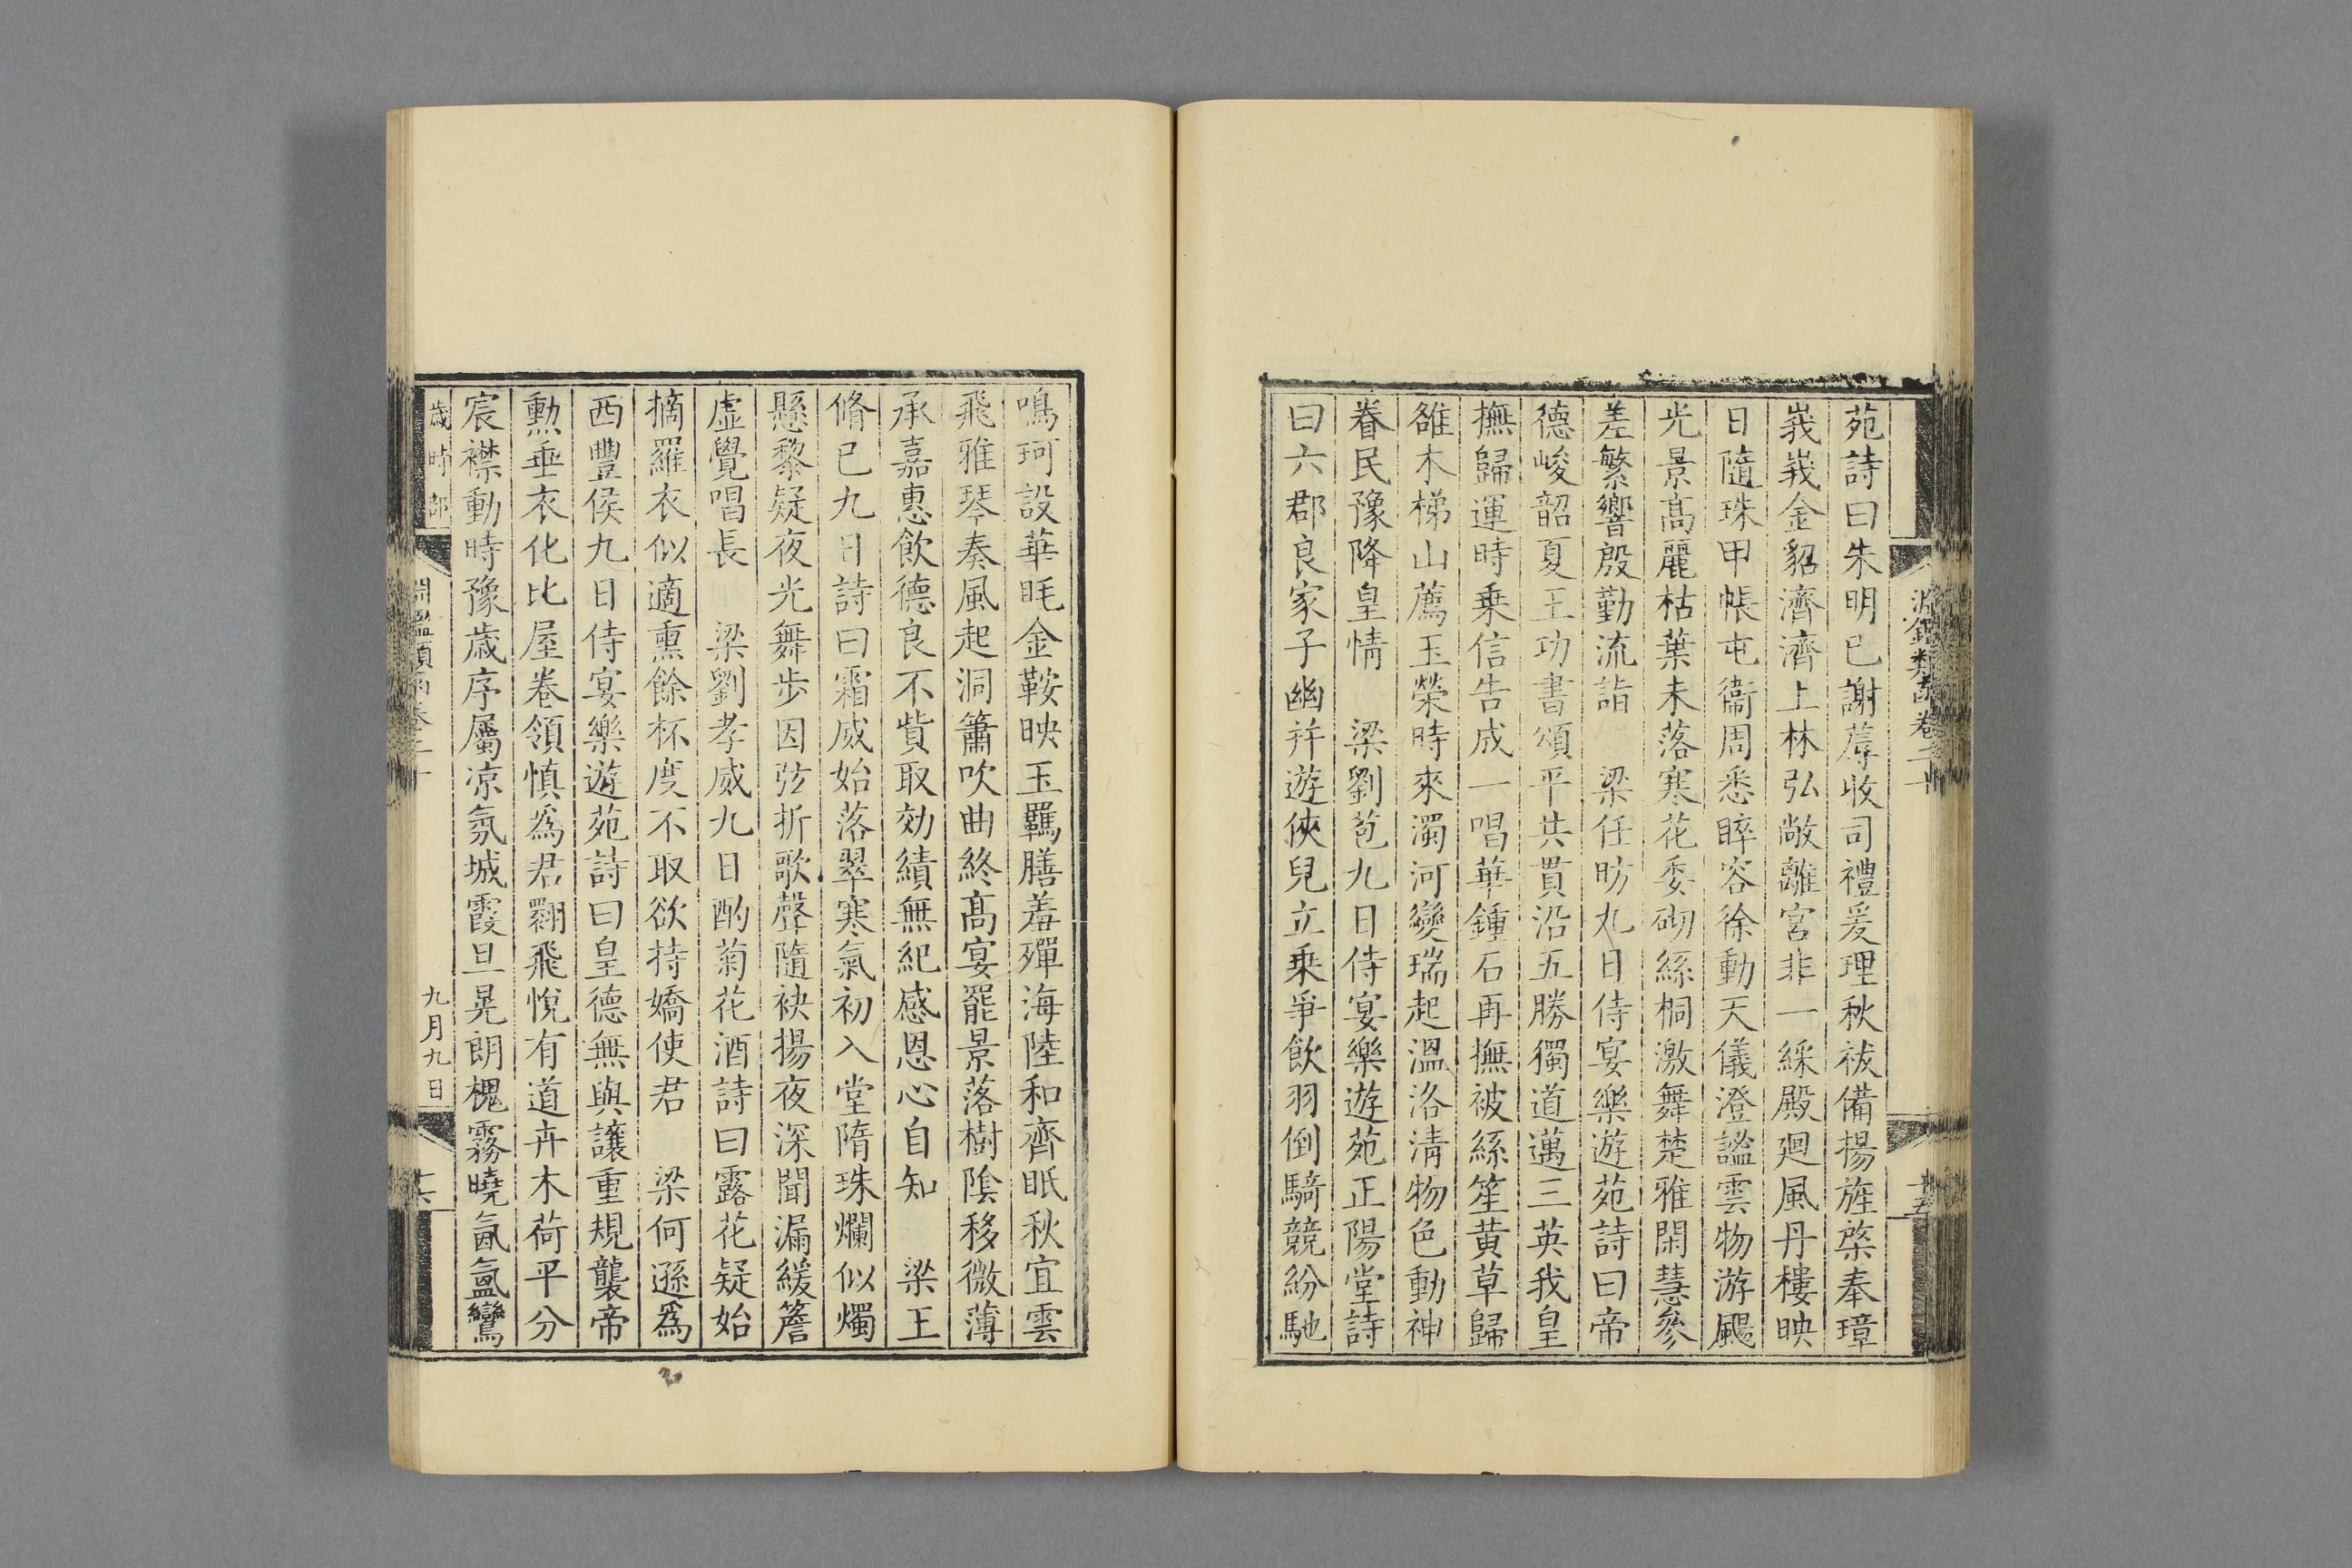 淵鑑類函卷二十
十五
苑詩曰朱明已謝蓐收司禮爰理秋祓備揚旌棨奉璋
峩峩金貂濟濟上林弘敞離宮非一綵殿廻風丹樓映
日隨珠甲帳屯衞周悉睟容徐動天儀澄謐雲物游颺
光景高麗枯葉未落寒花委砌絲桐激舞楚雅閑慧參
差繁響殷勤流詣　梁任昉九日侍宴樂遊苑詩曰帝
德峻韶夏王功書頌平共貫沿五勝獨道邁三英我皇
撫歸運時乗信告成一唱華鍾石再撫被絲笙黄草歸
雒木梯山薦玉榮時來濁河變瑞起溫洛淸物色動神
眷民豫降皇情　梁劉苞九日侍宴樂遊苑正陽堂詩
曰六郡良家子幽幷遊俠兒立乗爭飲羽倒騎競紛馳
鳴珂設華眊金鞍映玉羈膳羞殫海陸和齊眂秋宜雲
飛雅琴奏風起洞簫吹曲終髙宴罷景落樹陰移微薄
承嘉惠飲德良不貲取効績無紀感恩心自知　梁王
脩已九日詩曰霜威始落翠寒氣初入堂隋珠爛似燭
懸黎疑夜光舞步因弦折歌聲隨袂揚夜深聞漏緩簷
虚覺唱長　梁劉孝威九日酌菊花酒詩曰露花疑始
摘羅衣似適熏餘杯度不取欲持嬌使君　梁何遜爲
西豐侯九日侍宴樂遊苑詩曰皇德無與讓重規襲帝
勲垂衣化比屋卷領慎爲君翾飛悅有道卉木荷平分
宸襟動時豫歳序屬凉氛城霞旦晃朗槐霧曉氤氲鸞
歲時部
淵鑑類函卷二十
九月九日
十六